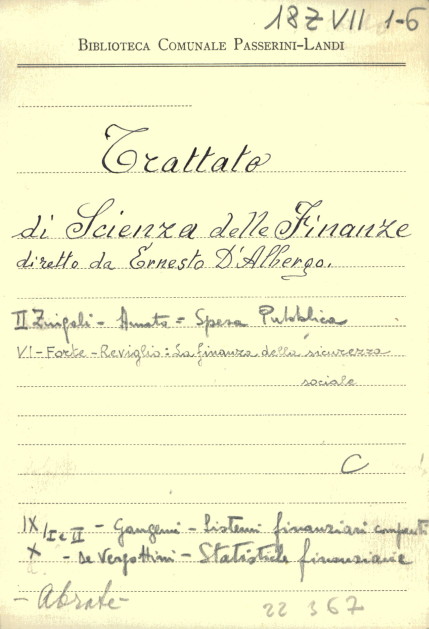 18Z VII 1-6
BIBLIOTECA COMUNALE PASSERINI-LANDI
Trattato
di Scienza delle Finanze
diretto da Ernesto D'Albergo.
II Zingali - Amato = Spesa Pubblica
VI - Forte - Reviglio: La finanza della sicurezza
sociale
C
IX/I e II - Gangemi - Sistemi finanziari comparati
X - De Vergottini - Statistiche finanziarie
- Abrate -
22 367